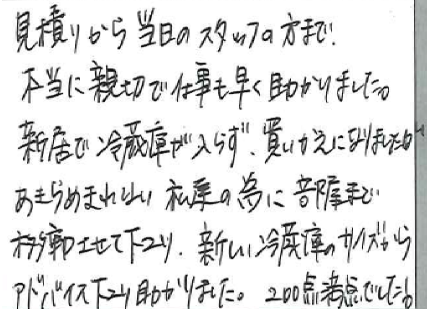 見積りから当日のスタッフの方まで、
本当に親切で仕事も早く助かりました。
新居で冷蔵庫が入らず、買いかえになりましたが
あきらめきれない私達の為に部屋まで
移動させて下さり、新しい冷蔵庫のサイズから
アドバイス下さり助かりました。200点満点でした!